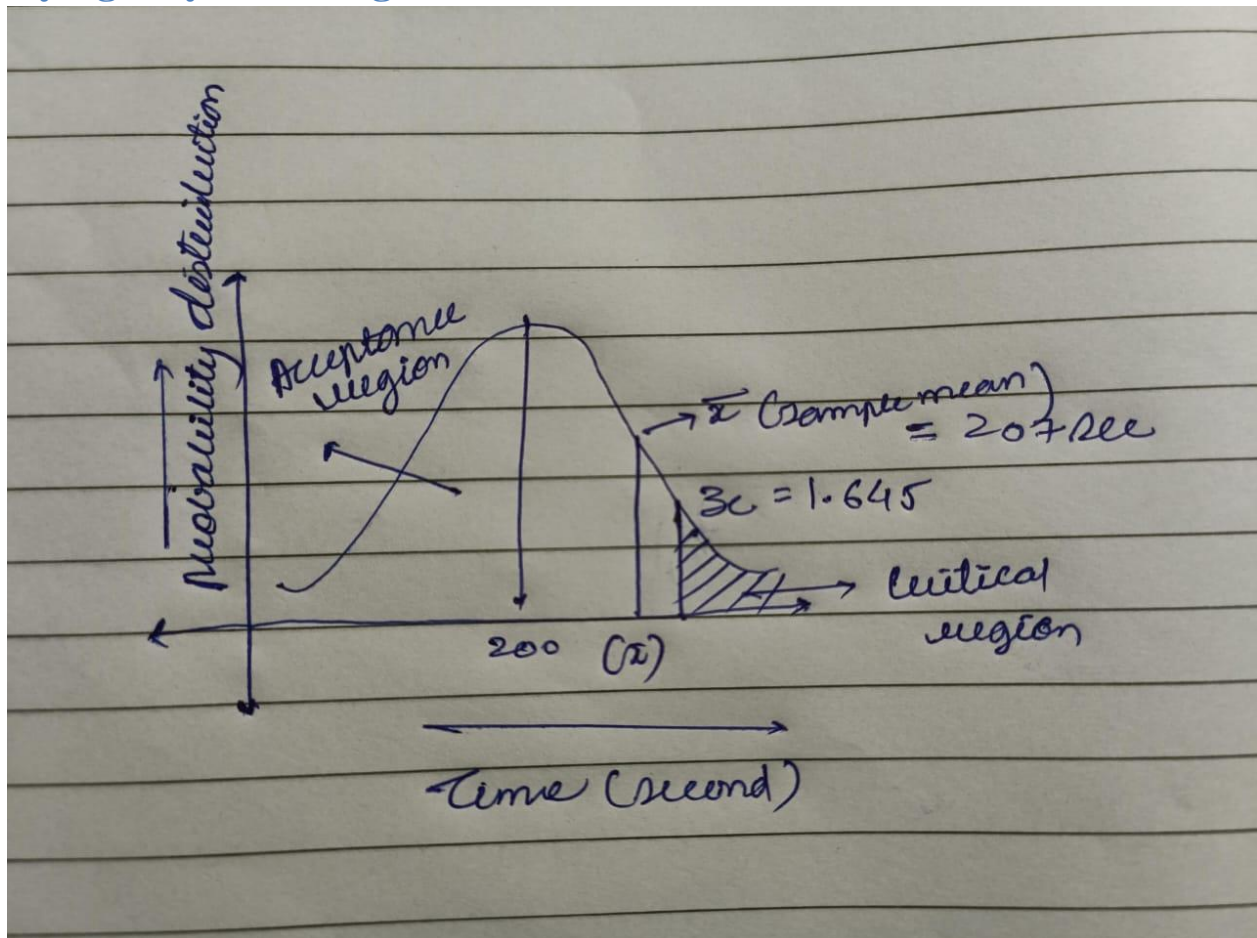 Probability distribution
Acceptance
region
x̄ (sample mean)
= 207 sec
Zc = 1.645
Critical
region
200 (x̄)
Time (second)